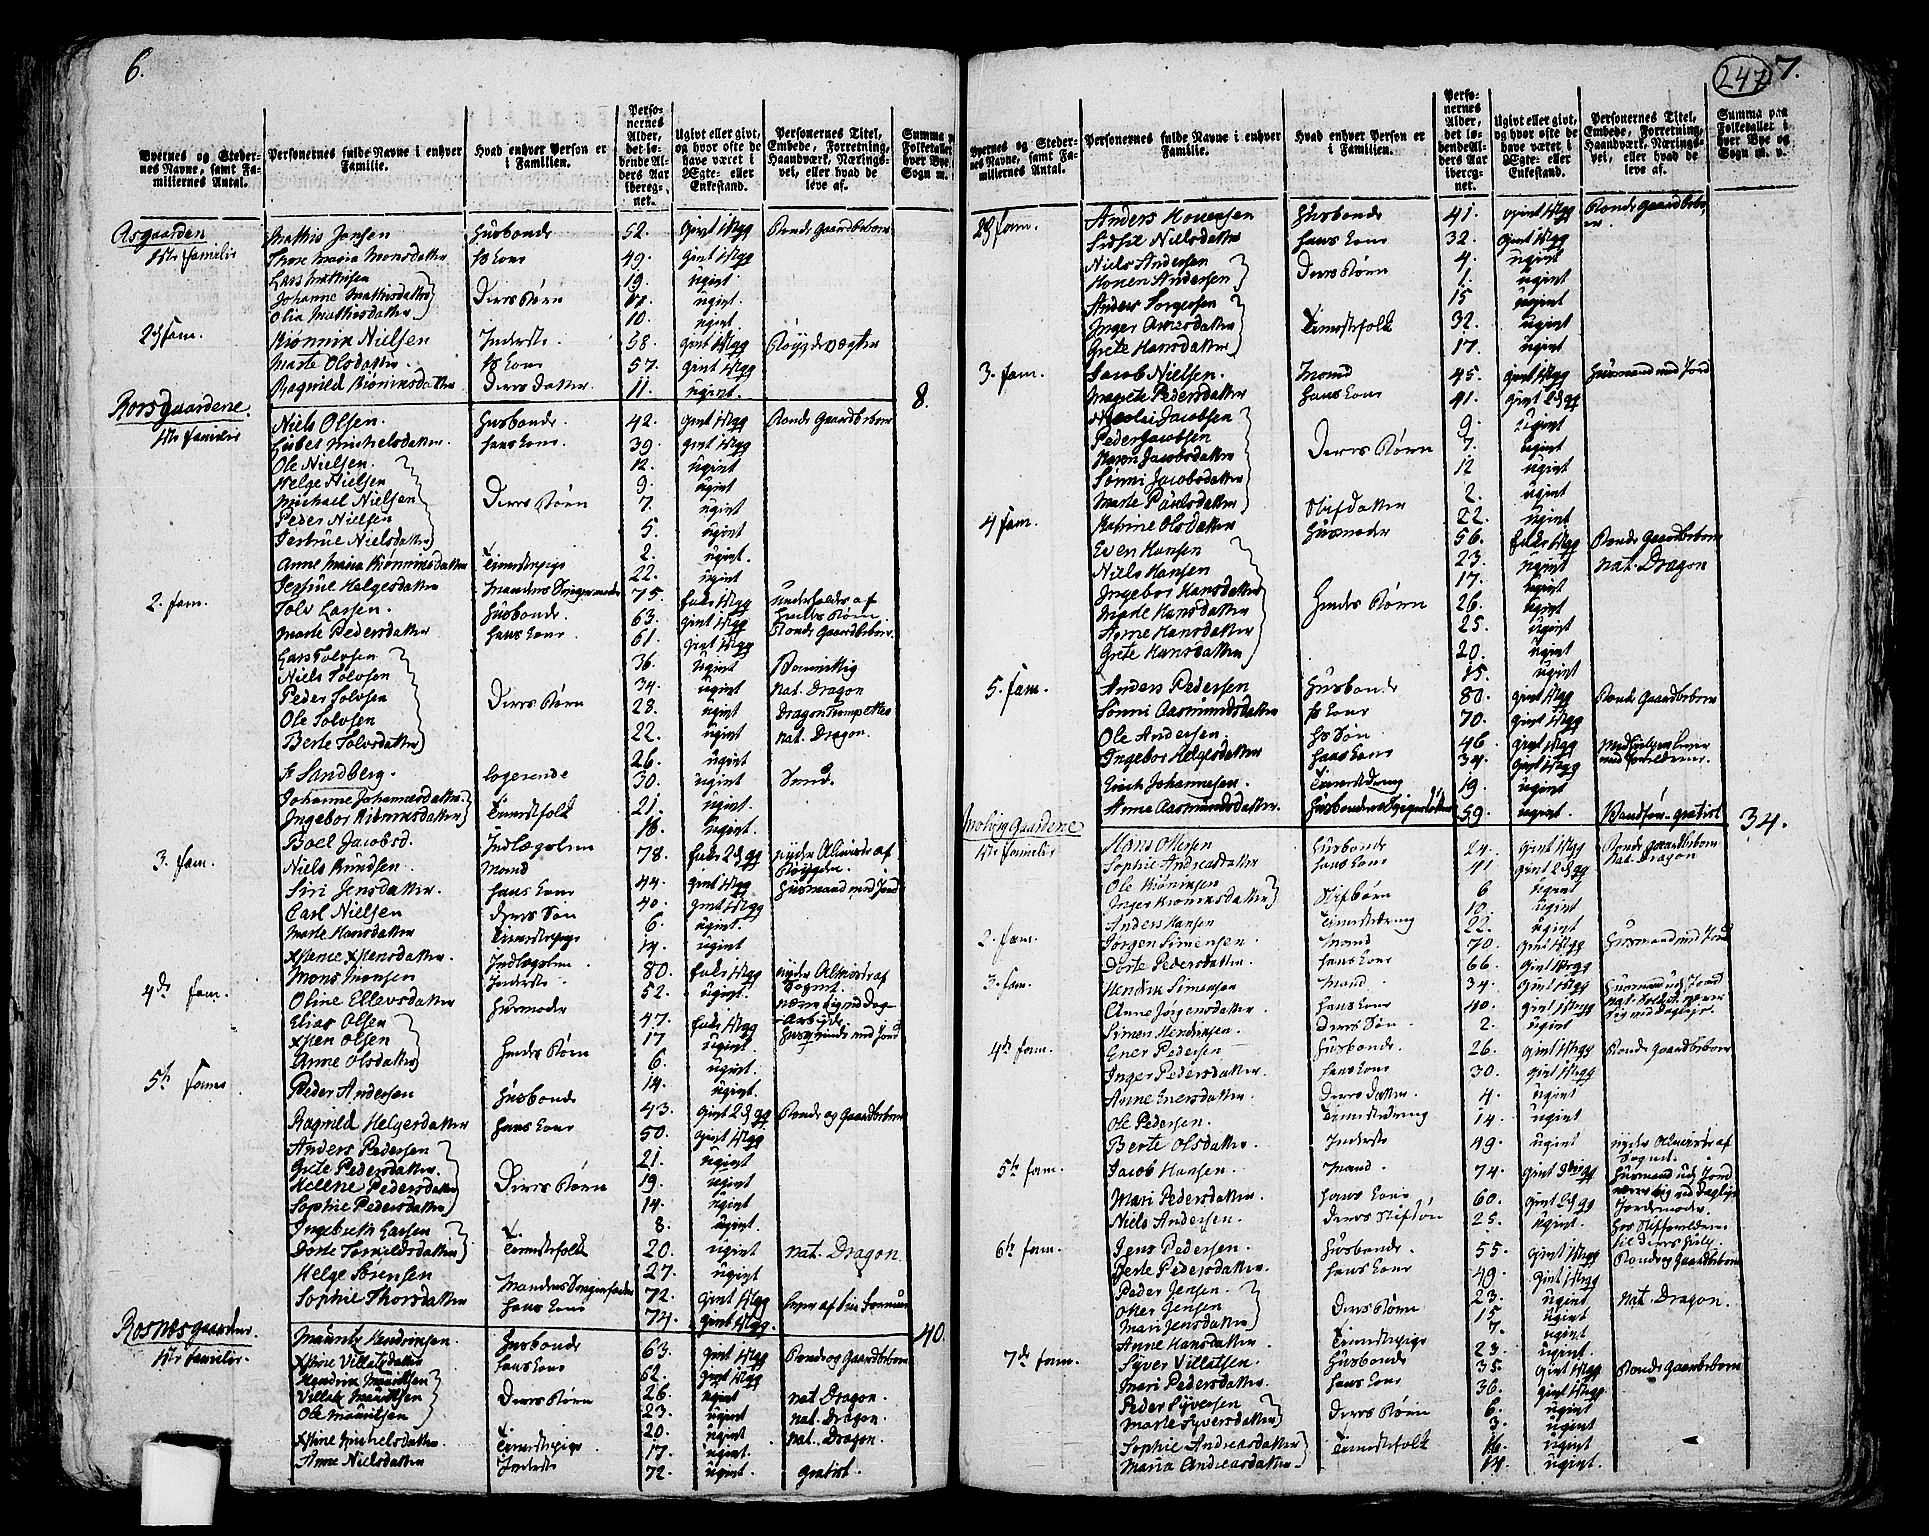 6.
Byernes og Stedernes Navne, samt Familiernes Antal.
Personernes fulde Navne i enhver Familie.
Hvad enhver Person er i Familien.
Personernes Alder, det løbende Alders Aar iberegnet.
Ugivt eller givt, og hvor ofte de have været i Ægte- eller Enkestand.
Personernes Titel, Embede, Forretning, Haandværk, Næringsvei, eller hvad de leve af.
Asgaarden Mathis Jensen Husbonde 52. givt 1ste gg Bonde Gaardbeboer
1ste familie Thore Maria Monsdatter hs kone 49. givt 1ste gg
Lars Mathisen 19. ugivt
Johanne Mathisdatter Deres Børn ugivt.
Olia Mathisdatter 10. ugivt
2d fam. Kiønnik Nielsen Inderste 58. givt 1ste gg Røygdevægter
Marte Olsdatter hs kone 57. givt 1ste gg
Ragnild Kiønniksdatter Deres datter. 11. ugivt. 8.
Rorsgaardene. Niels Olsen Husbonde. 42. givt 1ste gg Bonde Gaardbeboer
1ste familie Lisbet Michelsdatter hans kone. 39. givt 1ste gg
Ole Nielsen. 12. ugivt
Helge Nielsen 9. ugivt
Michael Nielsen Deres Børn 7. ugivt
Peder Nielsen 5. ugivt
Jertrue Nielsdatter 2. ugivt.
Anne Maria Kiønniksdatter Tienestepige 22. ugivt
Jertrue Helgesdatter Mandens Svigermoder 75. Enke 1ste gg underholdes af hendes Børn
2. fam. Tolv Larsen. Husbonde 63. givt 1ste gg Bonde Gaardbeboer
Marte Pedersdatter hans kone 61. givt 1ste gg
Lars Tolvsen 36. ugivt
Niels Tolvsen 34. ugivt nat. Dragon
Peder Tolvsen Deres Børn 28. ugivt Dragon Trompetter
Ole Tolvsen 22. ugivt nat. Dragon.
Berte Tolvsdatter 26. ugivt
Sandberg. logerende 30. ugivt Smed.
Johanne Johannesdatter. Tienestfolk 21. ugivt.
Ingebor Kiønniksdatter 16. ugivt.
Boel Jacobsd. Indlægslem 78. Enke 2d gg nyder Almisse af Røygden
3. fam. Niels Knudsen Mand 44. givt 1ste gg Husmand med Jord
Siri Jensdatter. hans kone 40. givt 1ste gg
Carl Nielsen deres Søn 6. ugivt.
Marte Hansdatter Tienestepige 14. ugivt
Indlægslem 80. Enke 1ste gg nyder Almisse af Sognet.
Mons Monsen Inderste 52. ugivt. nærer sig ved Dagarbeyde
4de fam. Oline Ellevsdatter Husmoder 47. Enke 1ste gg med Jord
Elias Olsen 17 ugivt.
Xsten Olsen Hendes Børn 6. ugivt.
Anne Olsdatter 14. ugivt
5te fam. Peder Andersen Husbonde 43. givt 2d gg Bonde og Gaardbeboer
Ragnild Helgesdatter hans kone 50. givt 1ste gg
Anders Pedersen 21. ugivt
Grete Pedersdatter. 19. ugivt
Helene Pedersdatter Deres Børn 14. ugivt
Sophie Pedersdatter 8. ugivt.
Ingebreth Larsen Tienestfolk 20. ugivt nat. Dragon.
Dorte Tormildsdatter 27. ugivt
Helge Sørensen Mandens Svigerfader 72. givt 1ste gg lever af sin formue
Sophie Thorsdatter hans kone 74. givt 1ste gg. 40.
Rosnæsgaardene. Mauritz Hendriksen Husbonde 63. givt 1ste gg Bonde og Gaardbeboer
1ste familie. Xstine Villatsdatter hans kone 62. givt 1ste gg
Hendrik Mauritsen 26. ugivt nat. Dragon.
Villatz Mauritsen Deres Børn 23. ugivt nat. Dragon.
Ole Mauritsen 20. ugivt nat. Dragon.
Xstine Michelsdatter. Tienestepige 17. ugivt.
Anne Nielsdatter Inderste 72. ugivt. gratist.
247 7.
Byernes og Stedernes Navne, samt Familiernes Antal.
Personernes fulde Navne i enhver Familie.
Hvad enhver Person er i Familien.
Personernes Alder, det løbende Alders Aar iberegnet.
Ugivt eller givt, og hvor ofte de have været i Ægte- eller Enkestand.
Personernes Titel, Embede, Forretning, Haandværk, Næringsvei, eller hvad de leve af.
Summa paa Folketallet i hver Bye og Sogn m. v.
2d fam. Anders Hovensen Husbonde 41. givt 1ste gg Bonde Gaardbeboer.
Sidsil Nielsdatter hans kone 32. givt 1ste gg
Niels Andersen Deres Børn 4. ugivt
Hoven Andersen 1. ugivt
Anders Torgersen 15 ugivt
Inger Arnesdatter Tienestefolk 32. ugivt
Grete Hansdatter 17. ugivt
3. fam. Jacob Nielsen Mand 45. givt 1ste gg Husmand med Jord
Magrete Pedersdatter hans kone 41. givt 2d gg
Nicolai Jacobsen 9. ugivt
Peder Jacobsen Deres Børn 7. ugivt
Karen Jacobsdatter 12 ugivt
Sønni Jacobsdatter 2. ugivt
Marte Paulsdatter Stifdatter 22. ugivt
4 fam. Katrine Olsdatter Husmoder 56. Enke 1ste gg Bonde Gaardbeboer
Even Hansen 23. ugivt nat. Dragon
Niels Hansen 17. ugivt
Ingebor Hansdatter Hendes Børn 26. ugivt
Marte Hansdatter 25. ugivt
Anne Hansdatter 20. ugivt
Grete Hansdatter 15. ugivt
5. fam. Anders Pedersen Husbonde 80. givt 1ste gg Bonde Gaardbeboer
Sønni Aasmundsdatter hs kone 70. givt 1ste gg
Ole Andersen hs Søn 46 givt 1ste gg
Ingebor Helgesdatter hans kone 34. givt 1ste gg
Erich Johannesen. Tienestdreng 19. ugivt
Anna Aasmundsdatter. 59. ugivt. gratist 34.
Hans Ottersen Husbonde 24. givt 1ste gg Bonde Gaardbeboer nat. Dragon
1ste familie Sophie Andreasdatter hans kone 41 givt 2d gg
Ole Kiøniksen Stifbørn 6 ugivt
Inger Kiøniksdatter 10 ugivt
Anders Hansen Tienestedreng 22. ugivt
2. fam. Jørgen Simensen. Mand 70. givt 1ste gg Husmand med Jord
Dorte Pedersdatter. hans kone 66. givt 1ste gg
3. fam. Hendrik Simensen Mand 34. givt 1ste gg
Anne Jørgensdatter hans kone 40. givt 1ste gg
Simen Hendriksen. Deres Søn. 2. ugivt
4de fam. Ener Pedersen Husbonde. 26. givt 1ste gg Bonde Gaardbeboer
Inger Pedersdatter. hans kone 30. givt 1ste gg
Anne Enersdatter. Deres datter. 4. ugivt
Ole Pedersen. Tienestedreng 14. ugivt
Berte Olsdatter. Inderste 49. ugivt nyder Almisse af Sognet.
5te fam. Jacob Hansen. Mand. 74. givt 3die gg
Mari Pedersdatter. hans kone 60. givt 2d gg
Niels Andersen. deres Stifsøn 25. ugivt.
6te fam. Jens Pedersen. Husbonde. 55. givt 1ste gg Bonde og Gaardbeboer
Berte Pedersdatter. hans kone 49. givt 1ste gg
Peder Jensen 23. ugivt nat. Dragon.
Otter Jensen Deres Børn 15 ugivt
Mari Jensdatter 7. ugivt
Anne Hansdatter. Tienestepige 23. ugivt
7de fam. Syver Villatsen. Husbonde 35. givt 1ste gg Bonde Gaardbeboer
Mari Pedersdatter. hans kone 36. givt 1ste gg
Peder Syversen Deres Børn 6. ugivt
Marte Syversdatter 3. ugivt
Sophie Andreasdatter Tienestefolk 16. ugivt
Maria Andreasdatter. 14. ugivt.